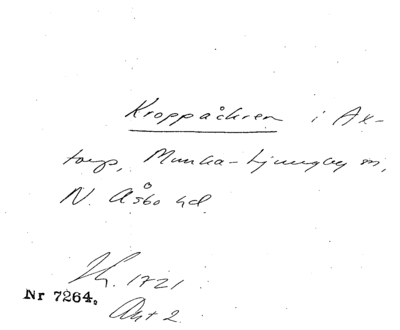 Kroppåkren i Ax-
torp, Munka-Ljungby sn,
N. Åsbo hd.
1721
Nr 7264.
Akt 2